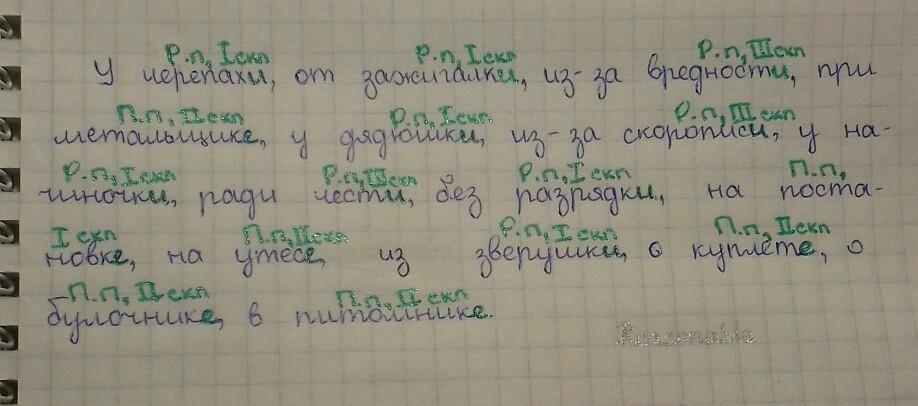 Р.п, I скл Р.п, I скл Р.п, III скл
У черепахи, от зажигалки, из-за вредности, при
П.п, II скл Р.п, I скл Р.п, III скл
метальщике, у дядюшки, из-за скорописи, у на-
Р.п, I скл Р.п, III скл Р.п, I скл П.п,
чиночки, ради чести, без разрядки, на поста-
I скл П.п, II скл Р.п, I скл П.п, II скл
новке, на утесе, из зверушки, о куплете, о
П.п, II скл П.п, II скл
булочнике, в питомнике.